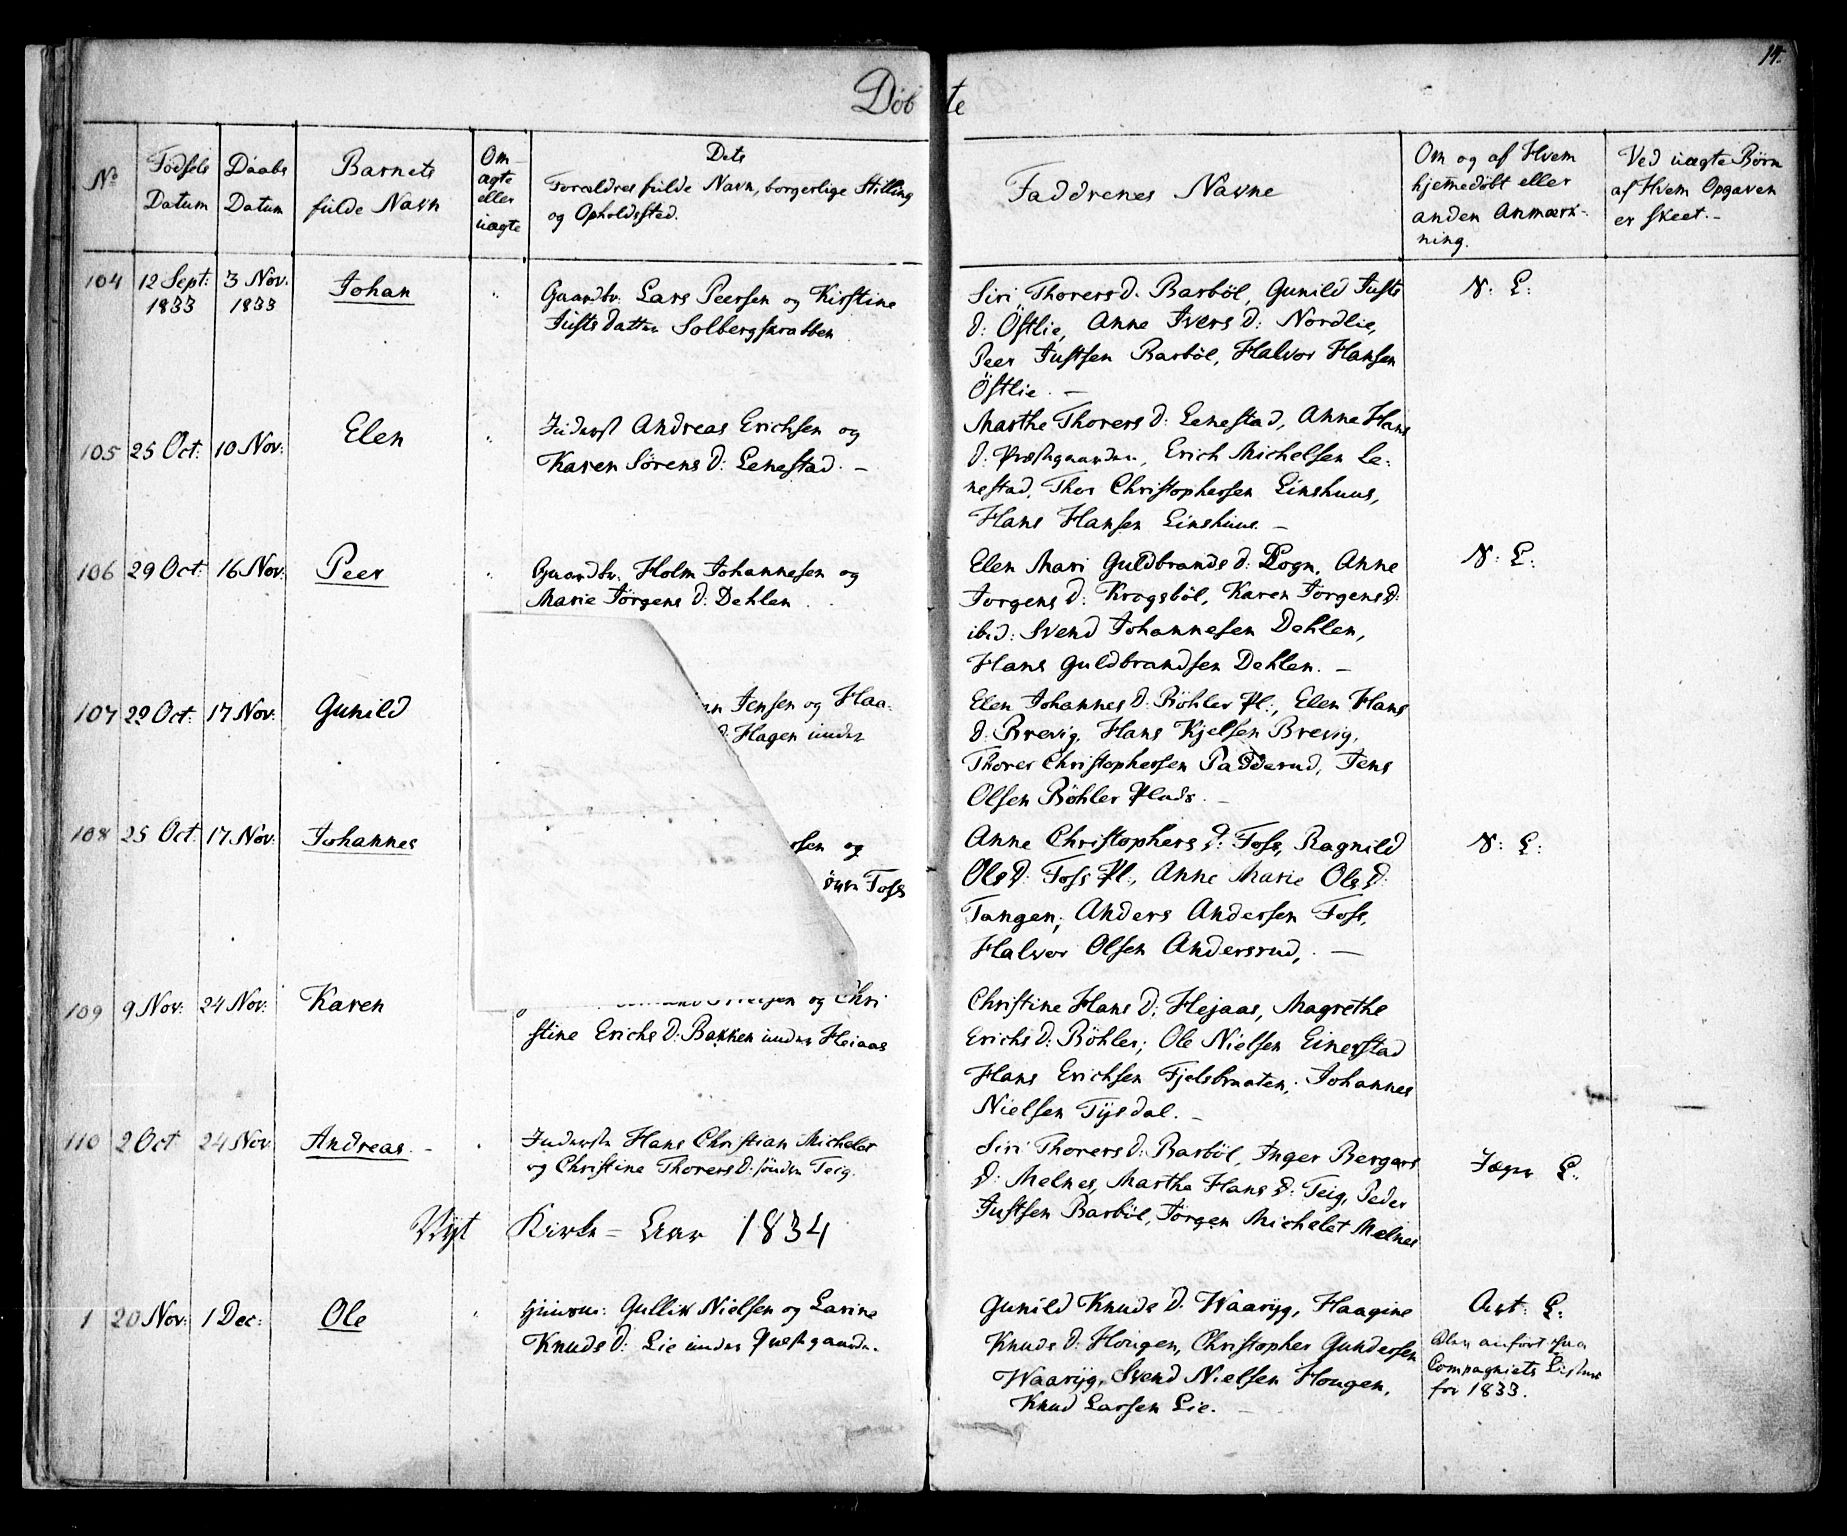 14.
Døbte
No
Fødsels Datum
Daabs Datum
Barnets fulde Navn
Om ægte eller uægte
Dets
Forældres fulde Navn, borgerlige Stilling
og Opholdssted.
Faddrenes Navne
Om og af Hvem
hjemmedøbt eller
anden Anmærk-
ning.
Ved uægte Børn
af Hvem Opgaven
er skeet.-
104 12 Sept: 1833 3 Nov. 1833 Johan
Gaardbr. Lars Peersen og Kirstine
Justsdatter Solbergskrabben
Siri Thorersd. Barbøl, Gunild Justs
d: Östlie, Anne Iversd: Nordlie,
Peer Justsen Barbøl, Halvor Hansen
Östlie. -
N: L:
105 25 Oct: 10 Nov: Elen
Inderst Andreas Erichsen og
Karen Sørensd: Lenestad. -
Marthe Thorersd: Lenestad, Anne Hans
d: Præstegaarden, Erich Michelsen Le:
nestad, Thor Christophersen Linshuus,
Hans Hansen Linshuus -
106 29 Oct: 16 Nov: Peer
Gaardbr. Holm Johannesen og
Marie Jørgensd: Dehlen.
Elen Mari Guldbrandsd: Sogn, Anne
Jørgensd: Krogsbøl, Karen Jørgensd:
ibid: Svend Johannesen Dehlen,
Hans Guldbrandsen Dehlen. -
N: L:
107 29 Oct: 17 Nov: Gunild
Jensen og Haa-
d: Hagen under
Elen Johannesd: Bøhler Pl:, Elen Hans
d: Brevig, Hans Kjelsen Brevig,
Thorer Christophersen Padderud, Jens
Olsen Bøhler Plads. -
108 25 Oct: 17 Nov: Johannes
rsen og
Foss
Anne Christophersd: Foss, Ragnild
Olsd: Foss Pl:, Anne Marie Olsd:
Tangen, Anders Andersen Foss,
Halvor Olsen Andersrud, -
N: L:
109 9 Nov: 24 Nov: Karen
og Chri
stine Erichsd: Bakken under Heiaas
Christine Hansd: Hejaas, Magrethe
Erichsd: Bøhler; Ole Nielsen Einerstad
Hans Erichsen Fjelsbraaten, Johannes
Nielsen Tijsdal. -
110 2 Oct 24 Nov Andreas. -
Inderste Hans Christian Michelet
og Christine Thorersd: søndre Teig.
Siri Thorersd: Barbøl, Inger Bergers
d: Melnes, Marthe Hansd: Teig, Peder
Justsen Barbøl, Jørgen Michelet Melnes
Jæger L:
Nyt Kirke = Aar 1834
1 20 Nov: 1 Dec: Ole
Huusm: Gullik Nielsen og Larine
Knudsd: Lie under Præstegaarden.
Gunild Knudsd: Waaryg, Haagine
Knudsd: Hougen, Christopher Gundersen
Waaryg, Svend Nielsen Hougen,
Knud Larsen Lie. -
Art: L:
anført paa
Compagniets Lister
for 1833.